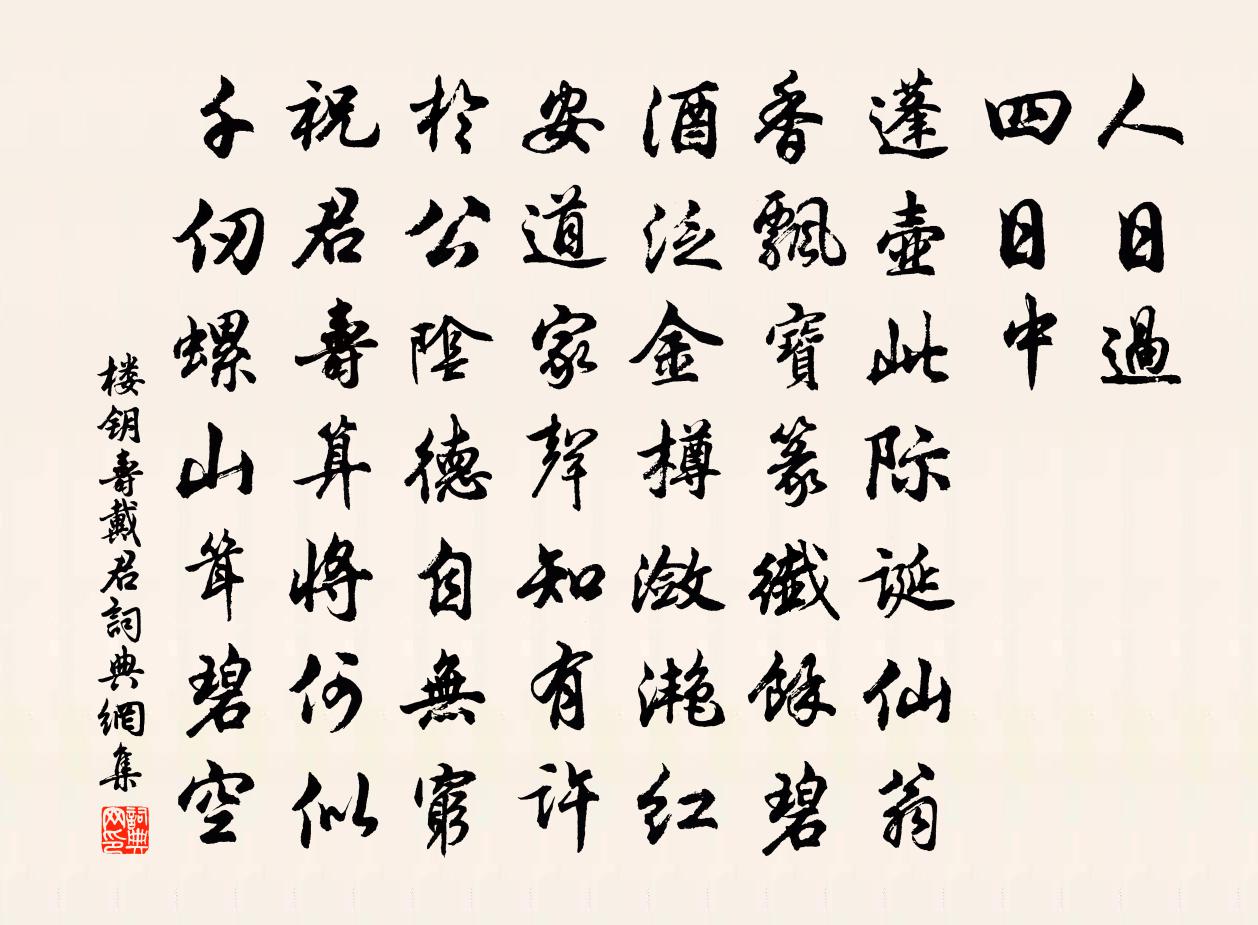 人日過
四日中
蓬壺此际誕仙翁
香飄寶篆纖餘碧
酒泛金樽瀲灩红
安道家聲知有許
於公陰德自無窮
祝君壽算將何似
千仞螺山聳碧空
楼钥壽戴君詞典網集
詞典
网印